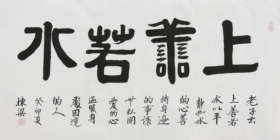 上善若水
老子云
上善若
水以平
静如水
的心善
待身边
的事
爱的心
温暖身
困境
的人
癸卯夏
栋梁